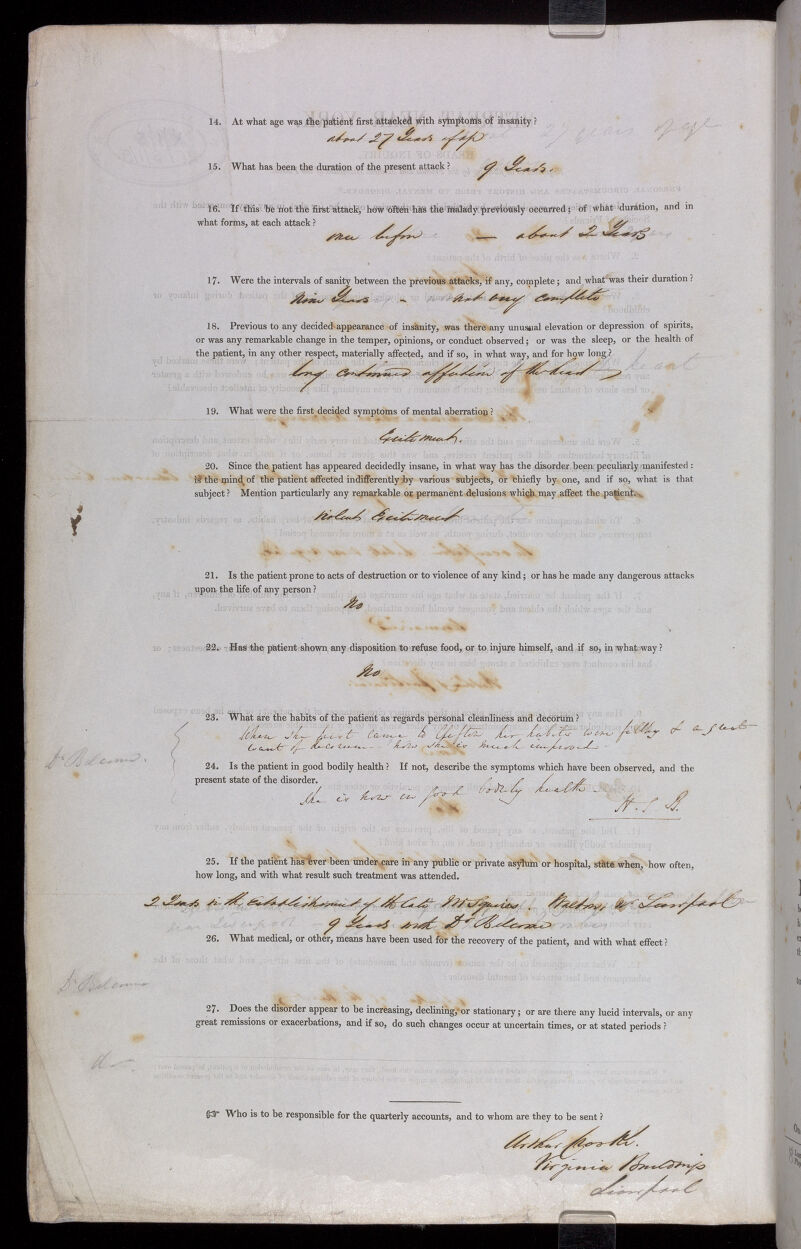 14. At what age was the patient first attacked with symptoms of insanity?
about 27 Years of age
27 years of age
15. What has been the duration of the present attack?
9 Years.
16. If this be not the first attack, how often has the malady previously occurred; of what duration, and in
what forms, at each attack?
once before — about 2 Years
17. Were the intervals of sanity between the previous attacks, if any, complete; and what was their duration?
Nine Years - not very complete
18. Previous to any decided appearance of insanity, was there any unusual elevation or depression of spirits,
or was any remarkable change in the temper, opinions, or conduct observed; or was the sleep, or the health of
the patient, in any other respect, materially affected, and if so, in what way, and for how long?
long continued affection of the heart
19. What were the first decided symptoms of mental aberration?
Excitement.
20. Since the patient has appeared decidedly insane, in what way has the disorder been peculiarly manifested:
is the mind of the patient affected indifferently by various subjects, or chiefly by one, and if so, what is that
subject? Mention particularly any remarkable or permanent delusions which may affect the patient.
violent Excitement
21. Is the patient prone to acts of destruction or to violence of any kind; or has he made any dangerous attacks
upon the life of any person?
No
22. Has the patient shown any disposition to refuse food, or to injure himself, and if so, in what way?
No
23. What are the habits of the patient as regards personal cleanliness and decorum?
When she first came to her habits were filthy & a great
want of decorum - now she is much improved
24. Is the patient in good bodily health? If not, describe the symptoms which have been observed, and the
present state of the disorder.
She is now in good bodily health -
H. S. B.
25. If the patient has ever been under care in any public or private asylum or hospital, state when, how often,
how long, and with what result such treatment was attended.
2 Years in the establishment of the late Mr Squires. Walton, Nr Liverpool
9 Years with Dr
26. What medical, or other, means have been used for the recovery of the patient, and with what effect?
27. Does the disorder appear to be increasing, declining, or stationary; or are there any lucid intervals, or any
great remissions or exacerbations, and if so, do such changes occur at uncertain times, or at stated periods?
☞ Who is to be responsible for the quarterly accounts, and to whom are they to be sent?
Arthur
Virginia Buildings
Liverpool